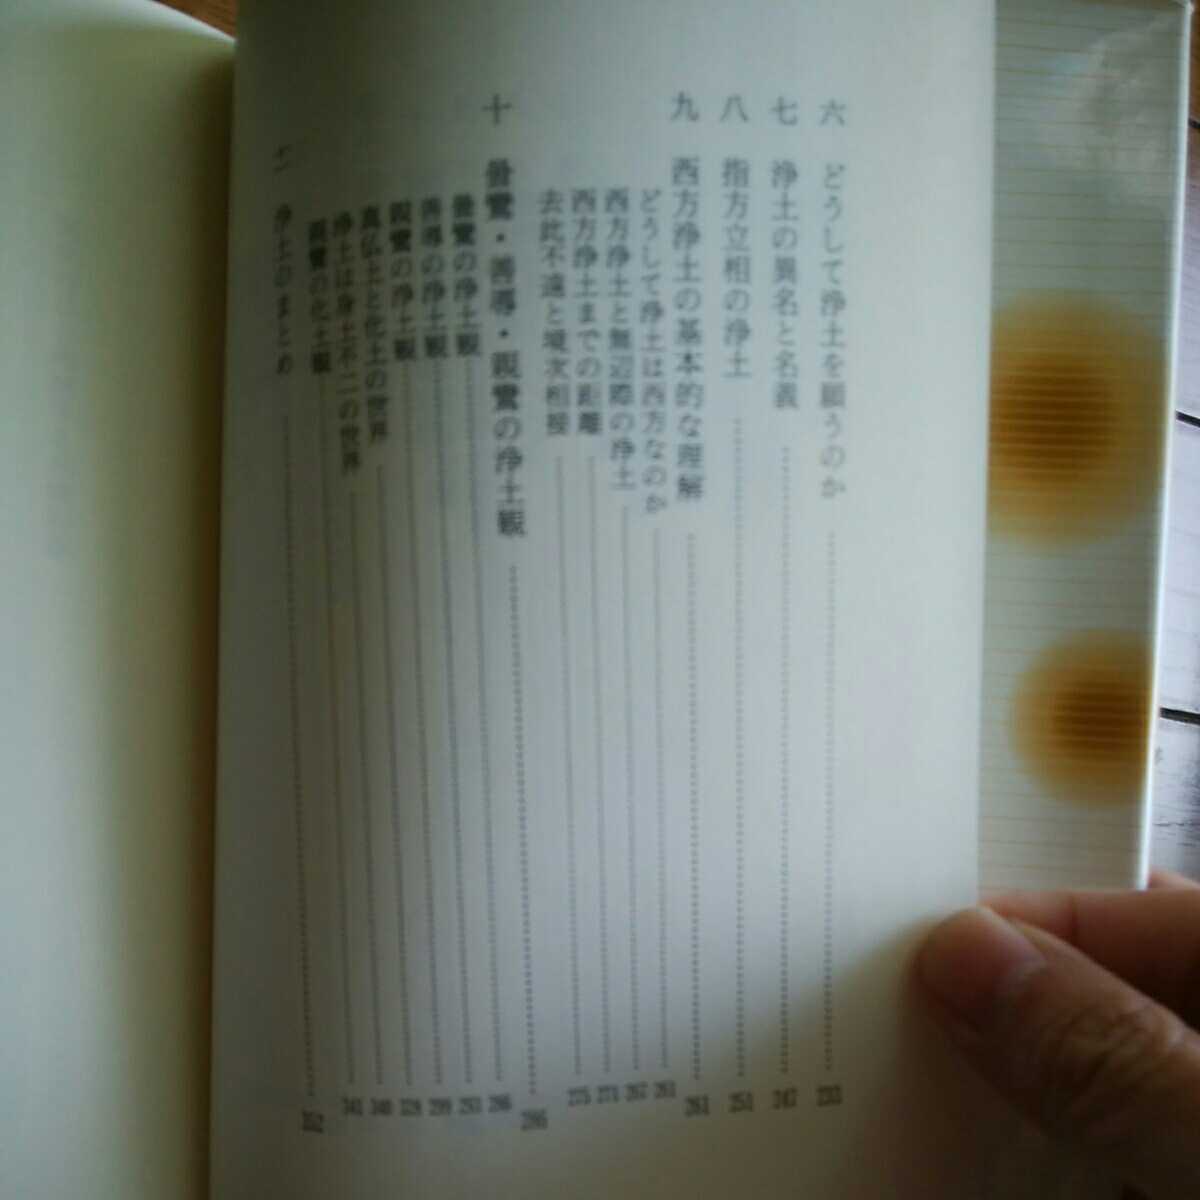 六 どうして浄土を願うのか 233
七 浄土の異名と名義 247
八 指方立相の浄土 251
九 西方浄土の基本的な理解 261
どうして浄土は西方なのか 261
西方浄土と無辺際の浄土 267
西方浄土までの距離 271
去此不遠と境次相接 275
十 曇鸞・善導・親鸞の浄土観 286
曇鸞の浄土観 286
善導の浄土観 293
親鸞の浄土観 299
真仏土と化土の世界 328
浄土は身土不二の世界 340
親鸞の化土観 341
十一 浄土のまとめ 352